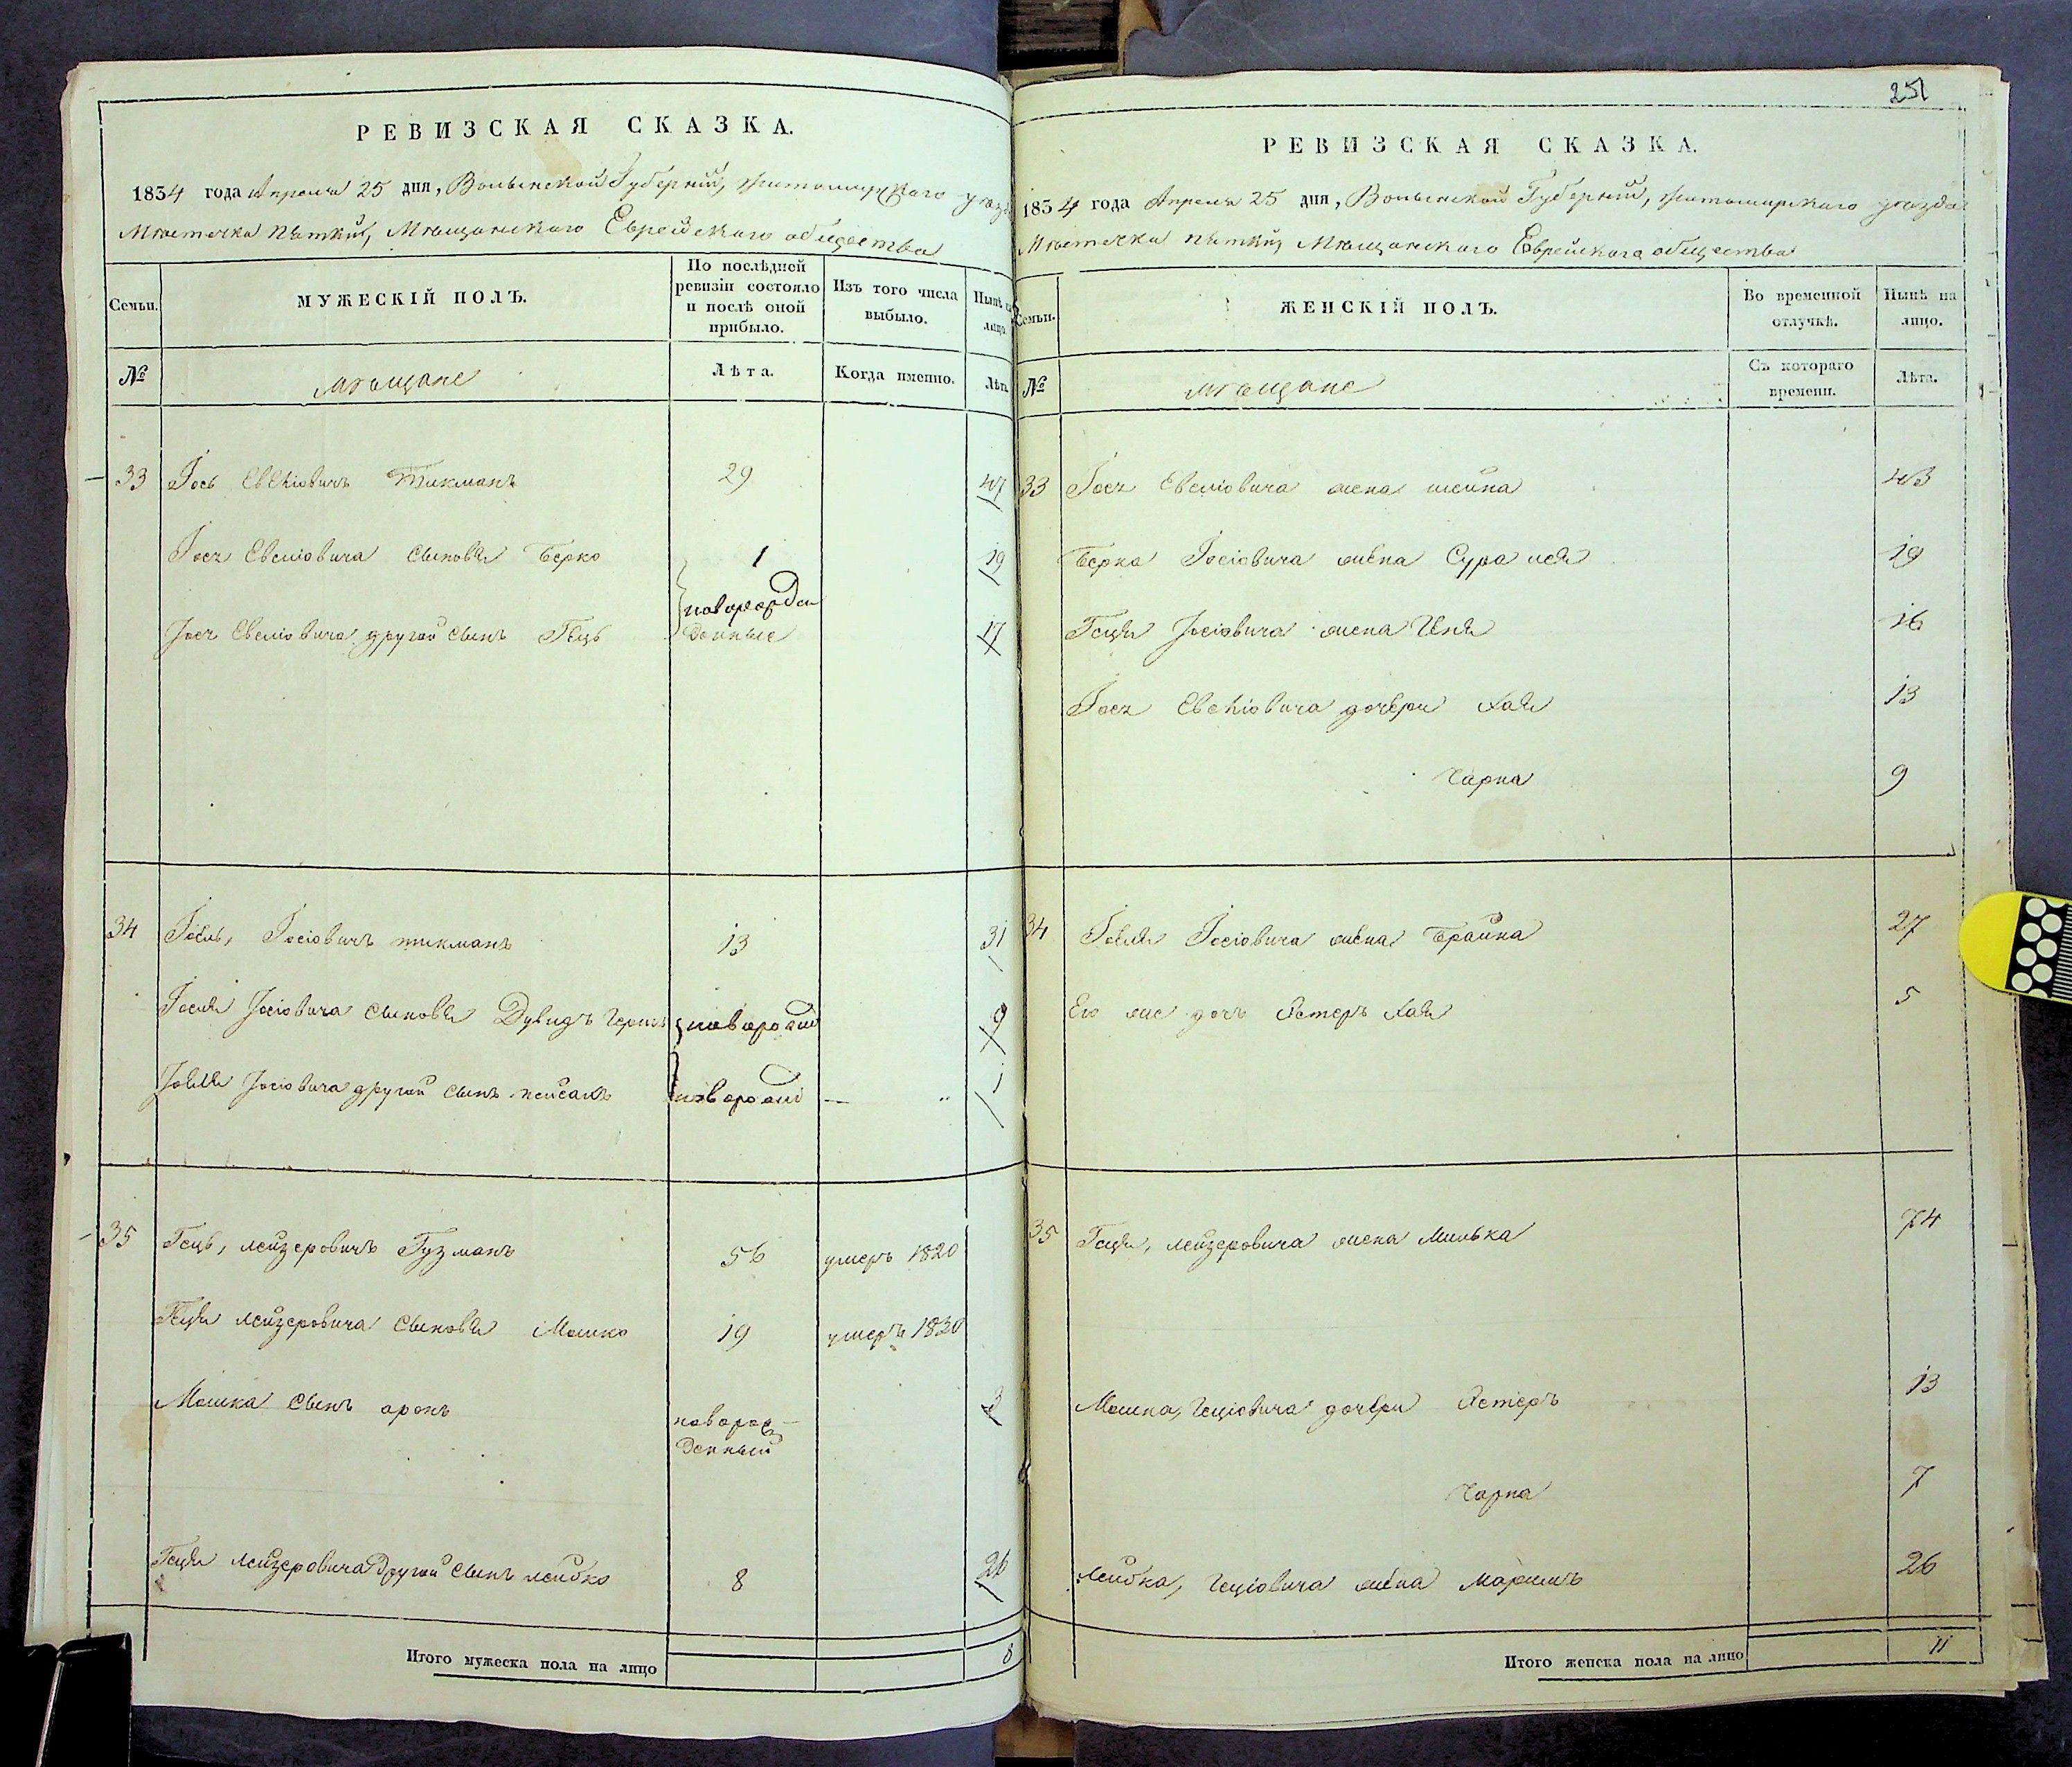 РЕВИЗСКАЯ СКАЗКА.
1834 года Апреля 25 дня, Волынской Губерніи, Житомирскаго уезда
Местечка Пятки, Мещанскаго Еврейскаго общества
Семьи. МУЖЕСКІЙ ПОЛЪ. По послѣдней ревизіи состояло и послѣ оной прибыло. Изъ того числа выбыло. Нынѣ на лицо.
№ мещане Лѣта. Когда именно. Лѣта
33 Іось Евеліовичъ Тикманъ 29 47
Іося Евеліовича сыновья Берко 1 19
новорож
Іося Евеліовича другой сынъ Гецъ денные 17
34 Іовль, Іосіовичъ тикманъ 13 31
Іовля Іосіовича сыновья Дувидъ Гершъ новорож 9
Іовля Іосіовича другой сынъ пейсахъ новорож — 1
35 Гецъ, лейзеровичъ Гузманъ 56 умеръ 1820
Геця лейзеровича сыновья Мошко 19 умеръ 1830
Мошка сынъ аронъ новорож- 3
денный
Геця лейзеровича другой сынъ лейбко 8 26
Итого мужеска пола на лицо 8
251
РЕВИЗСКАЯ СКАЗКА.
1834 года Апреля 25 дня, Волынской Губерніи, Житомирскаго уезда
Местечка Пятки, Мещанскаго Еврейскаго общества
Семьи. ЖЕНСКІЙ ПОЛЪ. Во временной отлучкѣ. Нынѣ на лицо.
№ мещане Съ котораго времени. Лѣта.
33 Іося Евеліовича жена шейна 43
Берка Іосіовича жена Сура лея 19
Геця Іосіовича жена 16
Іося Евеліовича дочери Хая 13
Чарна 9
34 Іовля Іосіовича жена Брайна 27
Его же дочь Эстеръ Хая 5
35 Геця, лейзеровича жена Милька 74
Мошка, Геціовича дочери Эстеръ 13
Чарна 7
Лейбка, Геціовича жена Маріимъ 26
Итого женска пола на лицо 11